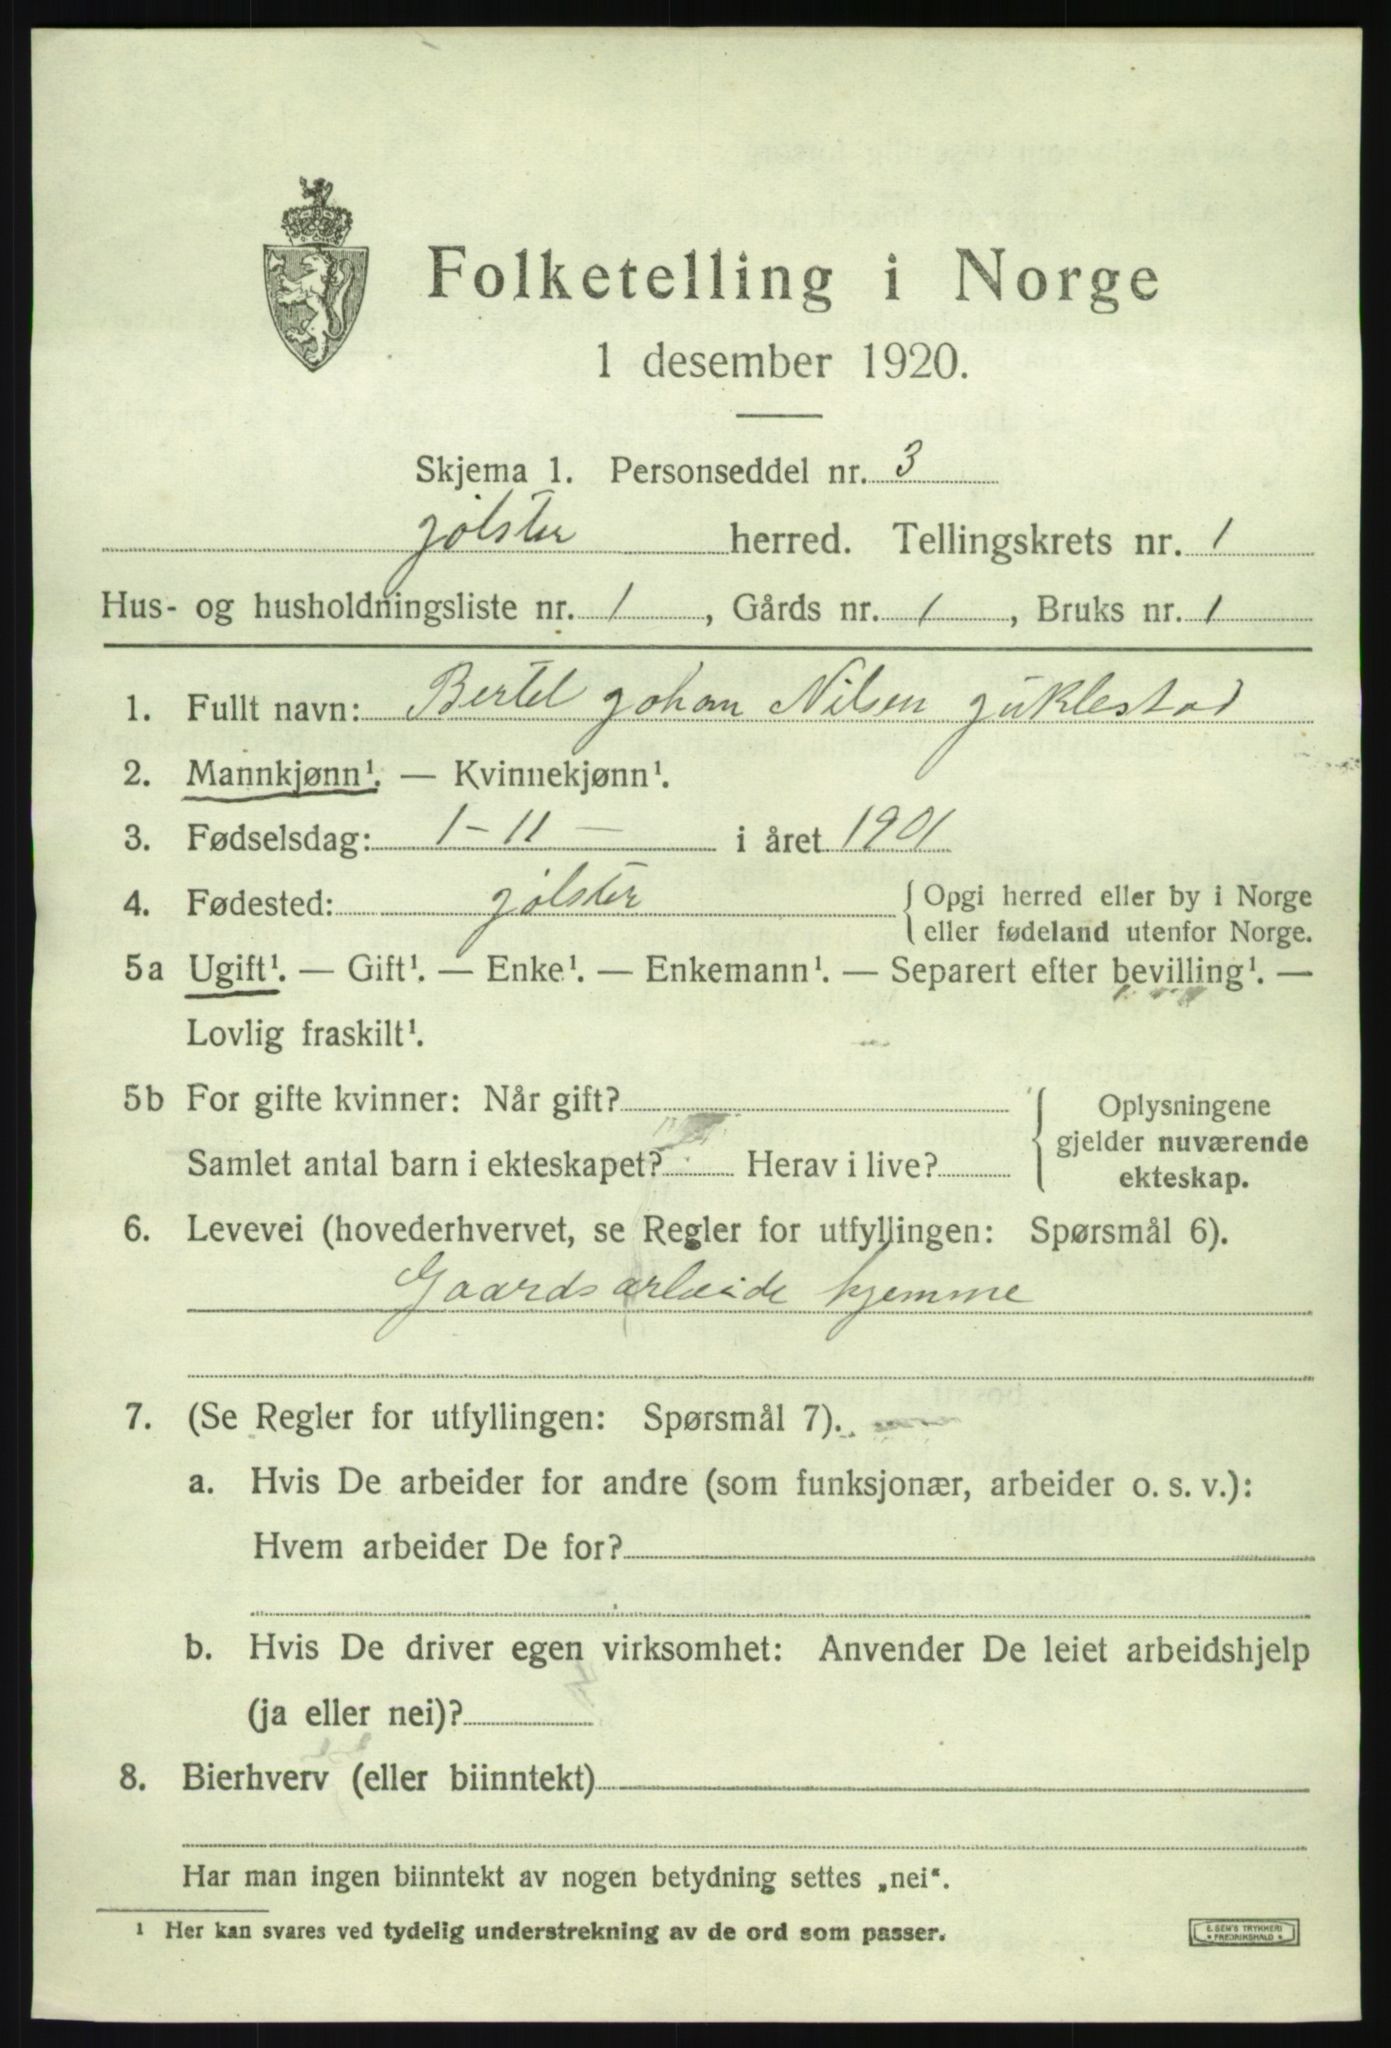 Folketelling i Norge
1 desember 1920.
Skjema 1. Personseddel nr. 3
Jølster herred. Tellingskrets nr. 1
Hus- og husholdningsliste nr. 1, Gårds nr. 1, Bruks nr. 1
1. Fullt navn: Bertel Johan Nilsen Juklestad
2. Mannkjønn¹. — Kvinnekjønn¹.
3. Fødselsdag: 1-11 — i året 1901
4. Fødested: Jølster { Opgi herred eller by i Norge
eller fødeland utenfor Norge.
5a Ugift¹. — Gift¹. — Enke¹. — Enkemann¹. — Separert efter bevilling¹. —
Lovlig fraskilt¹.
5b For gifte kvinner: Når gift?
Samlet antal barn i ekteskapet? Herav i live?
{ Oplysningene
gjelder nuværende
ekteskap.
6. Levevei (hovederhvervet, se Regler for utfyllingen: Spørsmål 6).
Gaardsarbeide hjemme
7. (Se Regler for utfyllingen: Spørsmål 7).
a. Hvis De arbeider for andre (som funksjonær, arbeider o. s. v.):
Hvem arbeider De for?
b. Hvis De driver egen virksomhet: Anvender De leiet arbeidshjelp
(ja eller nei)?
8. Bierhverv (eller biinntekt)
Har man ingen biinntekt av nogen betydning settes „nei“.
¹ Her kan svares ved tydelig understrekning av de ord som passer.
E. SEM'S TRYKKERI
* FREDRIKSHALD *